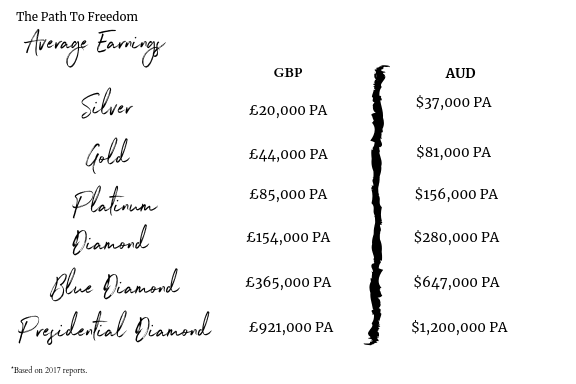 The Path To Freedom
Average Earnings
GBP AUD
Silver £20,000 PA $37,000 PA
Gold £44,000 PA $81,000 PA
Platinum £85,000 PA $156,000 PA
Diamond £154,000 PA $280,000 PA
Blue Diamond £365,000 PA $647,000 PA
Presidential Diamond £921,000 PA $1,200,000 PA
*Based on 2017 reports.